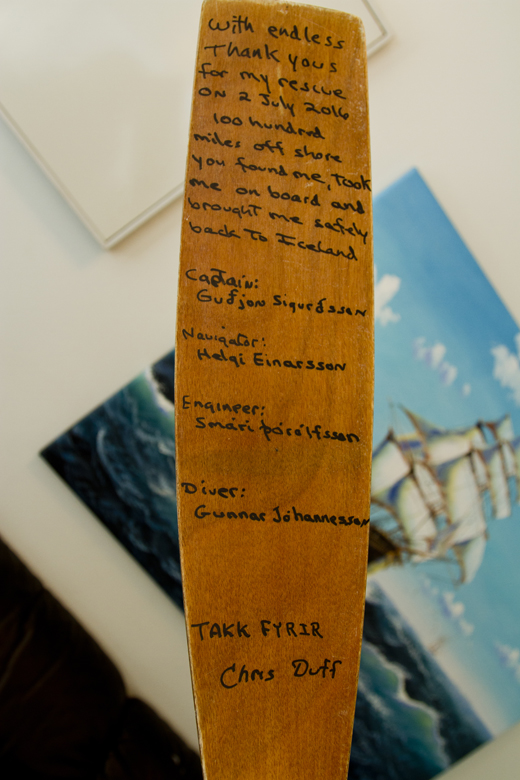 With endless
Thank yous
for my rescue
ON 2 July 2016
100 hundred
miles off shore
you found me, Took
me on board and
brought me safely
back To Iceland
Captain:
Guðjon Sigurðsson
Navigator:
Helgi Einarsson
Engineer:
Smári þórólfsson
Diver:
Gunnar Jóhannesson
TAKK FYRIR
Chris Duff